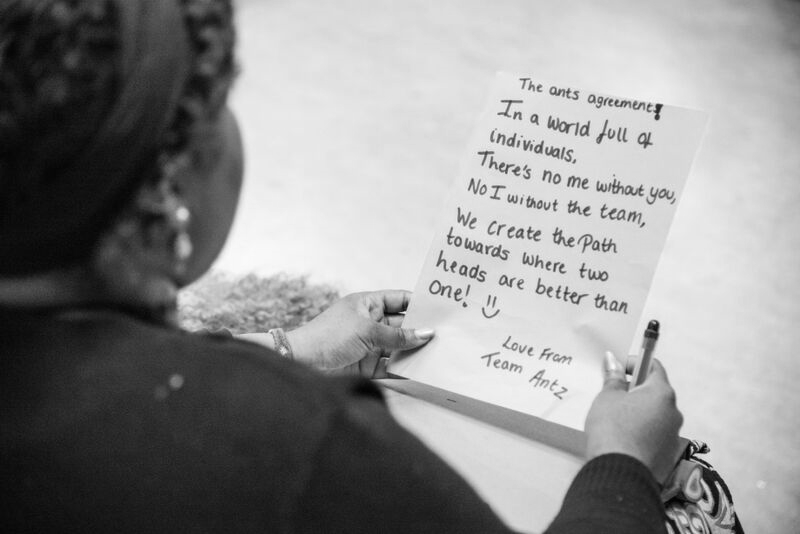 The ants agreement!
In a world full of
individuals,
There's no me without you,
No I without the team,
We create the Path
towards where two
heads are better than
One!
Love From
Team Antz